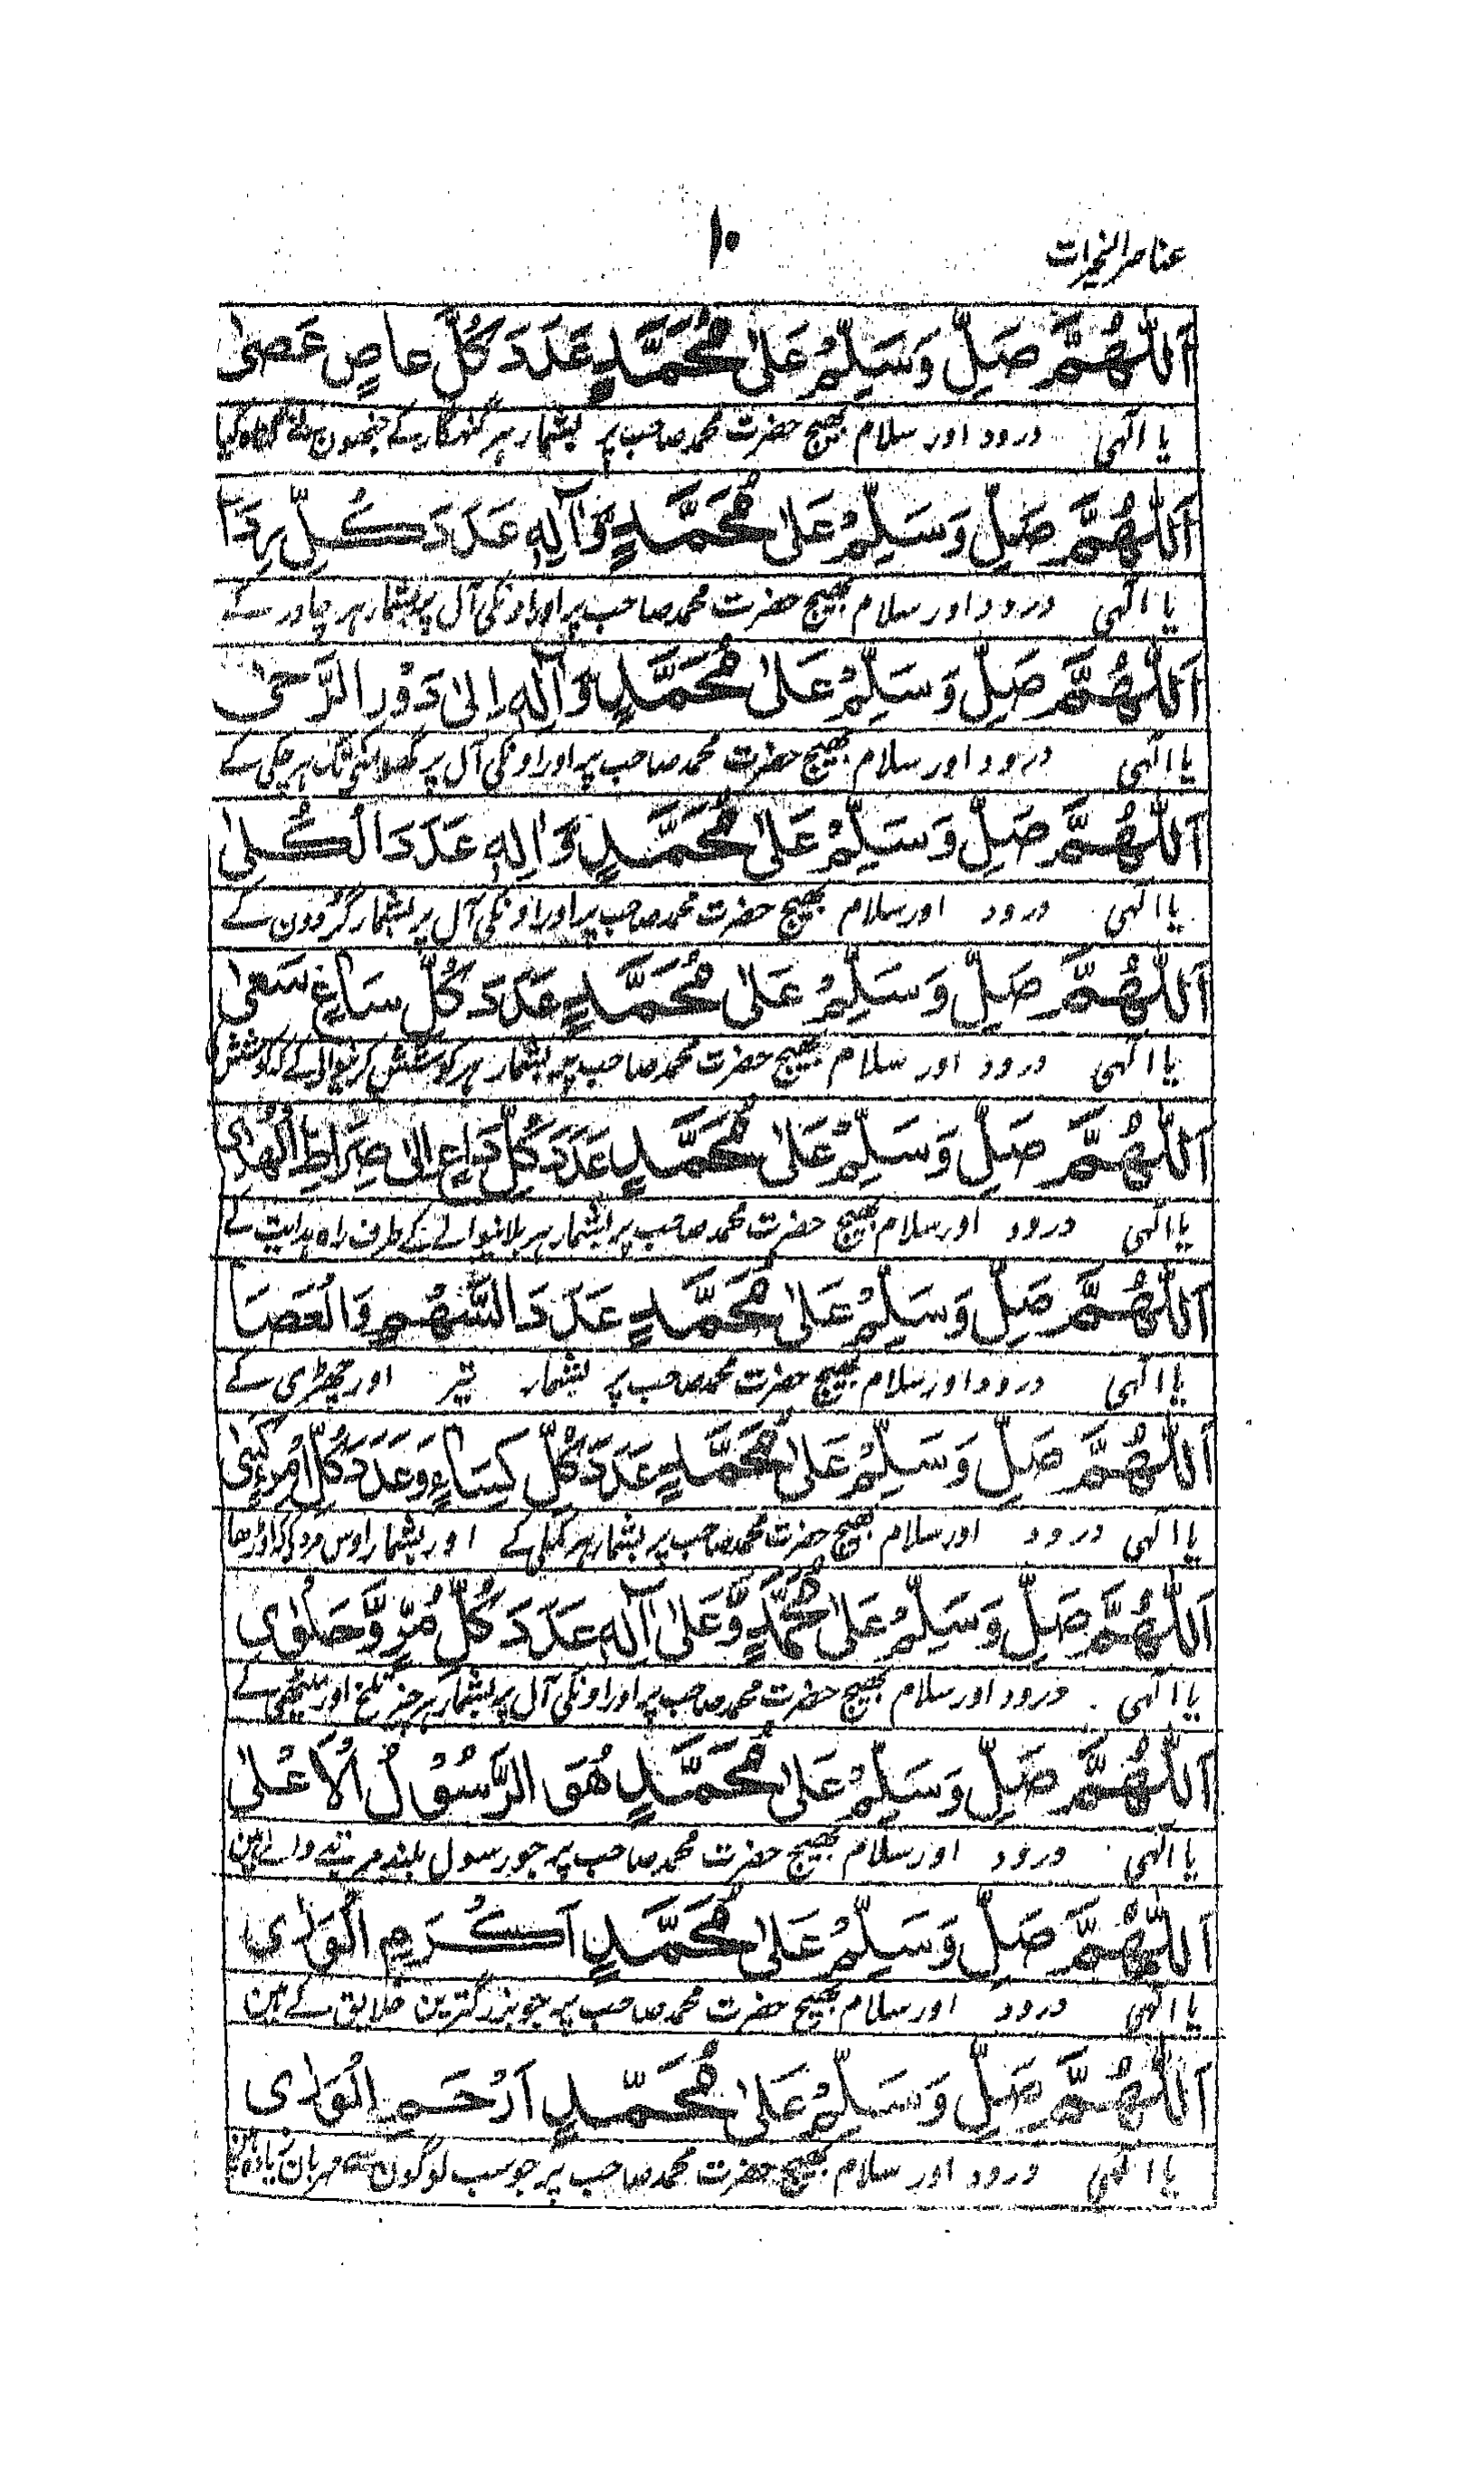 عناصر الخیرات
۱۰
اَللّٰهُمَّ صَلِّ وَسَلِّمْ عَلٰی مُحَمَّدٍ عَدَدَ كُلِّ عاصٍ عَصٰی
یا الٰہی درود اور سلام بھیج حضرت محمد صاحب پر بشمار ہر گنہگار کے جنھون نے گناہ کیا
اَللّٰهُمَّ صَلِّ وَسَلِّمْ عَلٰی مُحَمَّدٍ وَّآلِهٖ عَدَدَ كُلِّ رِدَآ
یا الٰہی درود اور سلام بھیج حضرت محمد صاحب پر اور اونکی آل پر بشمار ہر چادر کے
اَللّٰهُمَّ صَلِّ وَسَلِّمْ عَلٰی مُحَمَّدٍ وَّآلِهٖ اِلٰی دَوْرِ الرَّحٰی
یا الٰہی درود اور سلام بھیج حضرت محمد صاحب پر اور اونکی آل پر تک ہر چکی کے
اَللّٰهُمَّ صَلِّ وَسَلِّمْ عَلٰی مُحَمَّدٍ وَّاٰلِهٖ عَدَدَ الْكُلٰی
یا الٰہی درود اور سلام بھیج حضرت محمد صاحب پر اور اونکی آل پر بشمار گردون کے
اَللّٰهُمَّ صَلِّ وَسَلِّمْ عَلٰی مُحَمَّدٍ عَدَدَ كُلِّ سَاعٍ سَعٰی
یا الٰہی درود اور سلام بھیج حضرت محمد صاحب پر بشمار ہر کوشش کرنیوالے کے کہ کوشش
اَللّٰهُمَّ صَلِّ وَسَلِّمْ عَلٰی مُحَمَّدٍ عَدَدَ كُلِّ دَاعٍ اِلٰی صِرَاطِ الْهُدٰی
یا الٰہی درود اور سلام بھیج حضرت محمد صاحب پر بشمار ہر بلانیوالے کے طرف راہ ہدایت کے
اَللّٰهُمَّ صَلِّ وَسَلِّمْ عَلٰی مُحَمَّدٍ عَدَدَ السَّهْمِ وَالْعَصَا
یا الٰہی درود اور سلام بھیج حضرت محمد صاحب پر بشمار تیر اور چھڑی کے
اَللّٰهُمَّ صَلِّ وَسَلِّمْ عَلٰی مُحَمَّدٍ عَدَدَ كُلِّ كِسَآءٍ وَعَدَدَ كُلِّ امْرِءٍ كَسٰی
یا الٰہی درود اور سلام بھیج حضرت محمد صاحب پر بشمار ہر کملی کے اور بشمار اوس مرد کے کہ اوڑھا
اَللّٰهُمَّ صَلِّ وَسَلِّمْ عَلٰی مُحَمَّدٍ وَّعَلٰی آلِهٖ عَدَدَ كُلِّ مُرٍّ وَّحَلْوٰی
یا الٰہی درود اور سلام بھیج حضرت محمد صاحب پر اور اونکی آل پر بشمار ہر چیز تلخ اور میٹھی کے
اَللّٰهُمَّ صَلِّ وَسَلِّمْ عَلٰی مُحَمَّدٍ هُوَ الرَّسُوْلُ الْاَعْلٰی
یا الٰہی درود اور سلام بھیج حضرت محمد صاحب پر جو رسول بلند مرتبے والے ہین
اَللّٰهُمَّ صَلِّ وَسَلِّمْ عَلٰی مُحَمَّدٍ اَكْرَمِ الْوَرٰی
یا الٰہی درود اور سلام بھیج حضرت محمد صاحب پر جو بزرگترین خلایق کے ہین
اَللّٰهُمَّ صَلِّ وَسَلِّمْ عَلٰی مُحَمَّدٍ اَرْحَمِ الْوَرٰی
یا الٰہی درود اور سلام بھیج حضرت محمد صاحب پر جو سب لوگون سے مہربان زیادہ ہین